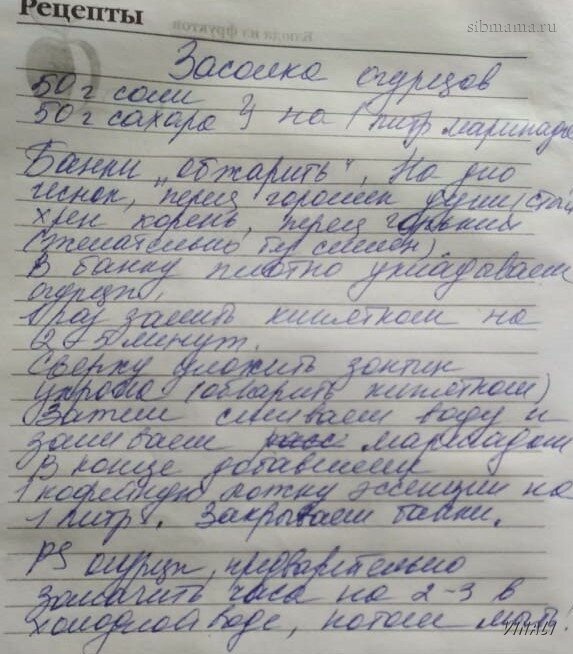 Рецепты
sibmama.ru
Блюда из фруктов
Засолка огурцов
50 г соли
50 г сахара } на 1 литр маринада
Банки „обжарить“. На дно
чеснок, перец горошек, душистый
хрен корень, перец горький
(желательно без семян)
В банку плотно укладываем
огурцы.
1 раз залить кипятком на
5 минут.
Сверху уложить зонтик
укропа (обварить кипятком)
Затем сливаем воду и
заливаем расс маринадом
В конце добавляем
1 кофейную ложку эссенции на
1 литр. Закрываем банки.
PS огурцы, предварительно
замочить часа на 2-3 в
холодной воде, потом мыть!
VINALI